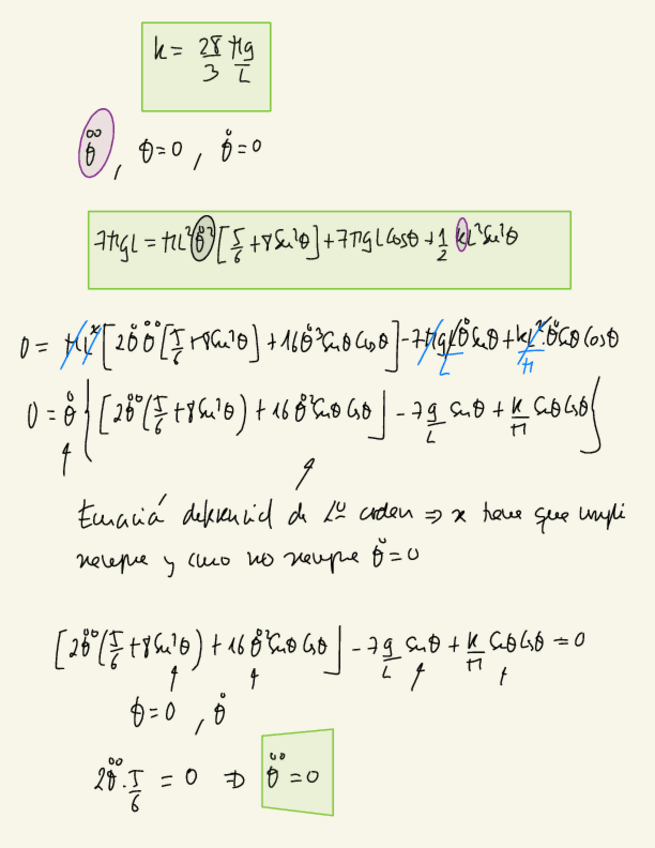 k = 28/3 Mg/L
θ̈ , θ=0 , θ̇=0
7MgL = ML²θ̇²[5/6 + 8Sen²θ] + 7MgL Cosθ + 1/2 kL²Sen²θ
0 = ML²[2θ̇θ̈[5/6 + 8Sen²θ] + 16θ̇³Senθ Cosθ] - 7MgLθ̇Senθ + kL²θ̇Senθ Cosθ
0 = θ̇{[2θ̈(5/6 + 8Sen²θ) + 16θ̇²Senθ Cosθ] - 7g/L Senθ + k/M Senθ Cosθ}
Ecuación diferencial de 2º orden ⇒ x tiene que cumplir
siempre y como no siempre θ̇=0
[2θ̈(5/6 + 8Sen²θ) + 16θ̇²Senθ Cosθ] - 7g/L Senθ + k/M Senθ Cosθ = 0
θ=0 , θ̇
2θ̈·5/6 = 0 ⇒ θ̈=0